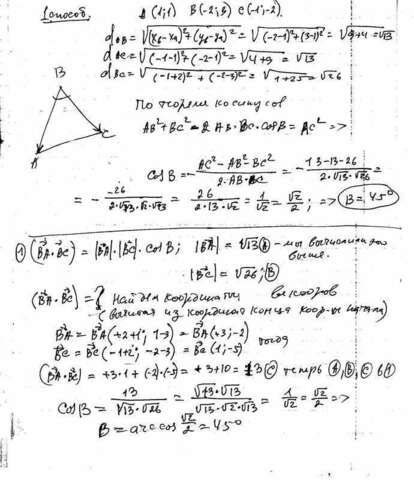 1 способ. A(1;1) B(-2;3) C(-1;-2).
d_AB = √(x_B-x_A)²+(y_B-y_A)² = √(-2-1)²+(3-1)² = √9+4 = √13
d_AC = √(-1-1)²+(-2-1)² = √4+9 = √13
d_BC = √(-1+2)²+(-2-3)² = √1+25 = √26
B
A
C
По теореме косинусов
AB²+BC²-2AB·BC·cosB = AC² =>
cosB = - AC²-AB²-BC² / 2·AB·BC = - 13-13-26 / 2·√13·√26 =
= - -26 / 2·√13·√2·√13 = 26 / 2·13·√2 = 1/√2 = √2/2; => B=45°
① (BA·BC) = |BA|·|BC|·cosB; |BA| = √13 - мы вычислили это
выше.
|BC| = √26; Ⓑ
(BA·BC) = ? Найдём координаты векторов
(вычитая из координат конца коор-ты начала)
BA = BA(+2+1; 1-3) = BA(+3;-2) тогда
BC = BC(-1+2; -2-3) = BC(1;-5)
(BA·BC) = +3·1+(-2)·(-5) = +3+10 = 13 Ⓒ теперь Ⓐ, Ⓑ, Ⓒ в ①
cosB = 13 / √13·√26 = √13·√13 / √13·√2·√13 = 1/√2 = √2/2 =>
B = arccos √2/2 = 45°